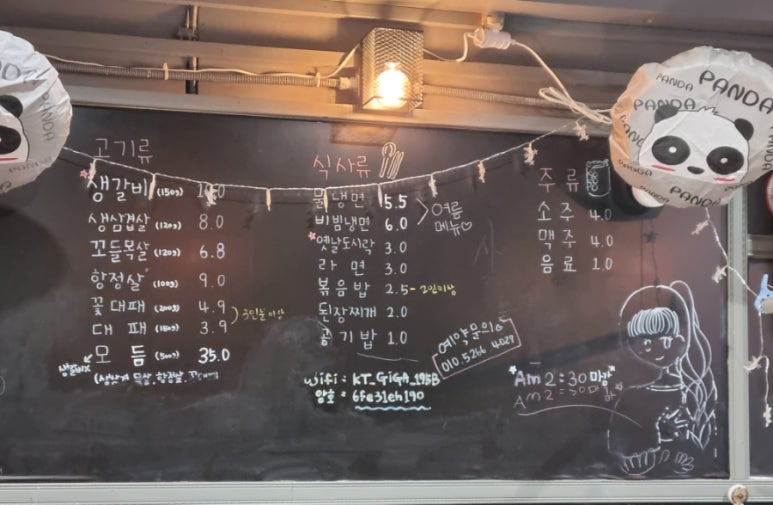 고기류
생갈비 (150g) 10.0
생삼겹살 (120g) 8.0
꼬들목살 (120g) 6.8
항정살 (100g) 9.0
꽃대패 (200g) 4.9
대패 (150g) 3.9
3인분이상
모듬 (500g) 35.0
생갈비X
(생삼겹 목살, 항정살, 꽃대패)
식사류
물냉면 5.5
비빔냉면 6.0
여름
메뉴♡
옛날도시락 3.0
라면 3.0
볶음밥 2.5 - 2인이상
된장찌개 2.0
공기밥 1.0
예약문의
010.5266.4029
Wifi : KT_GiGA_195B
암호 : 6fe31eh190
주류
소주 4.0
맥주 4.0
음료 1.0
Am 2:30 마감
Am 2:30 마감
PANDA
PANDA
PANDA
PANDA
PANDA